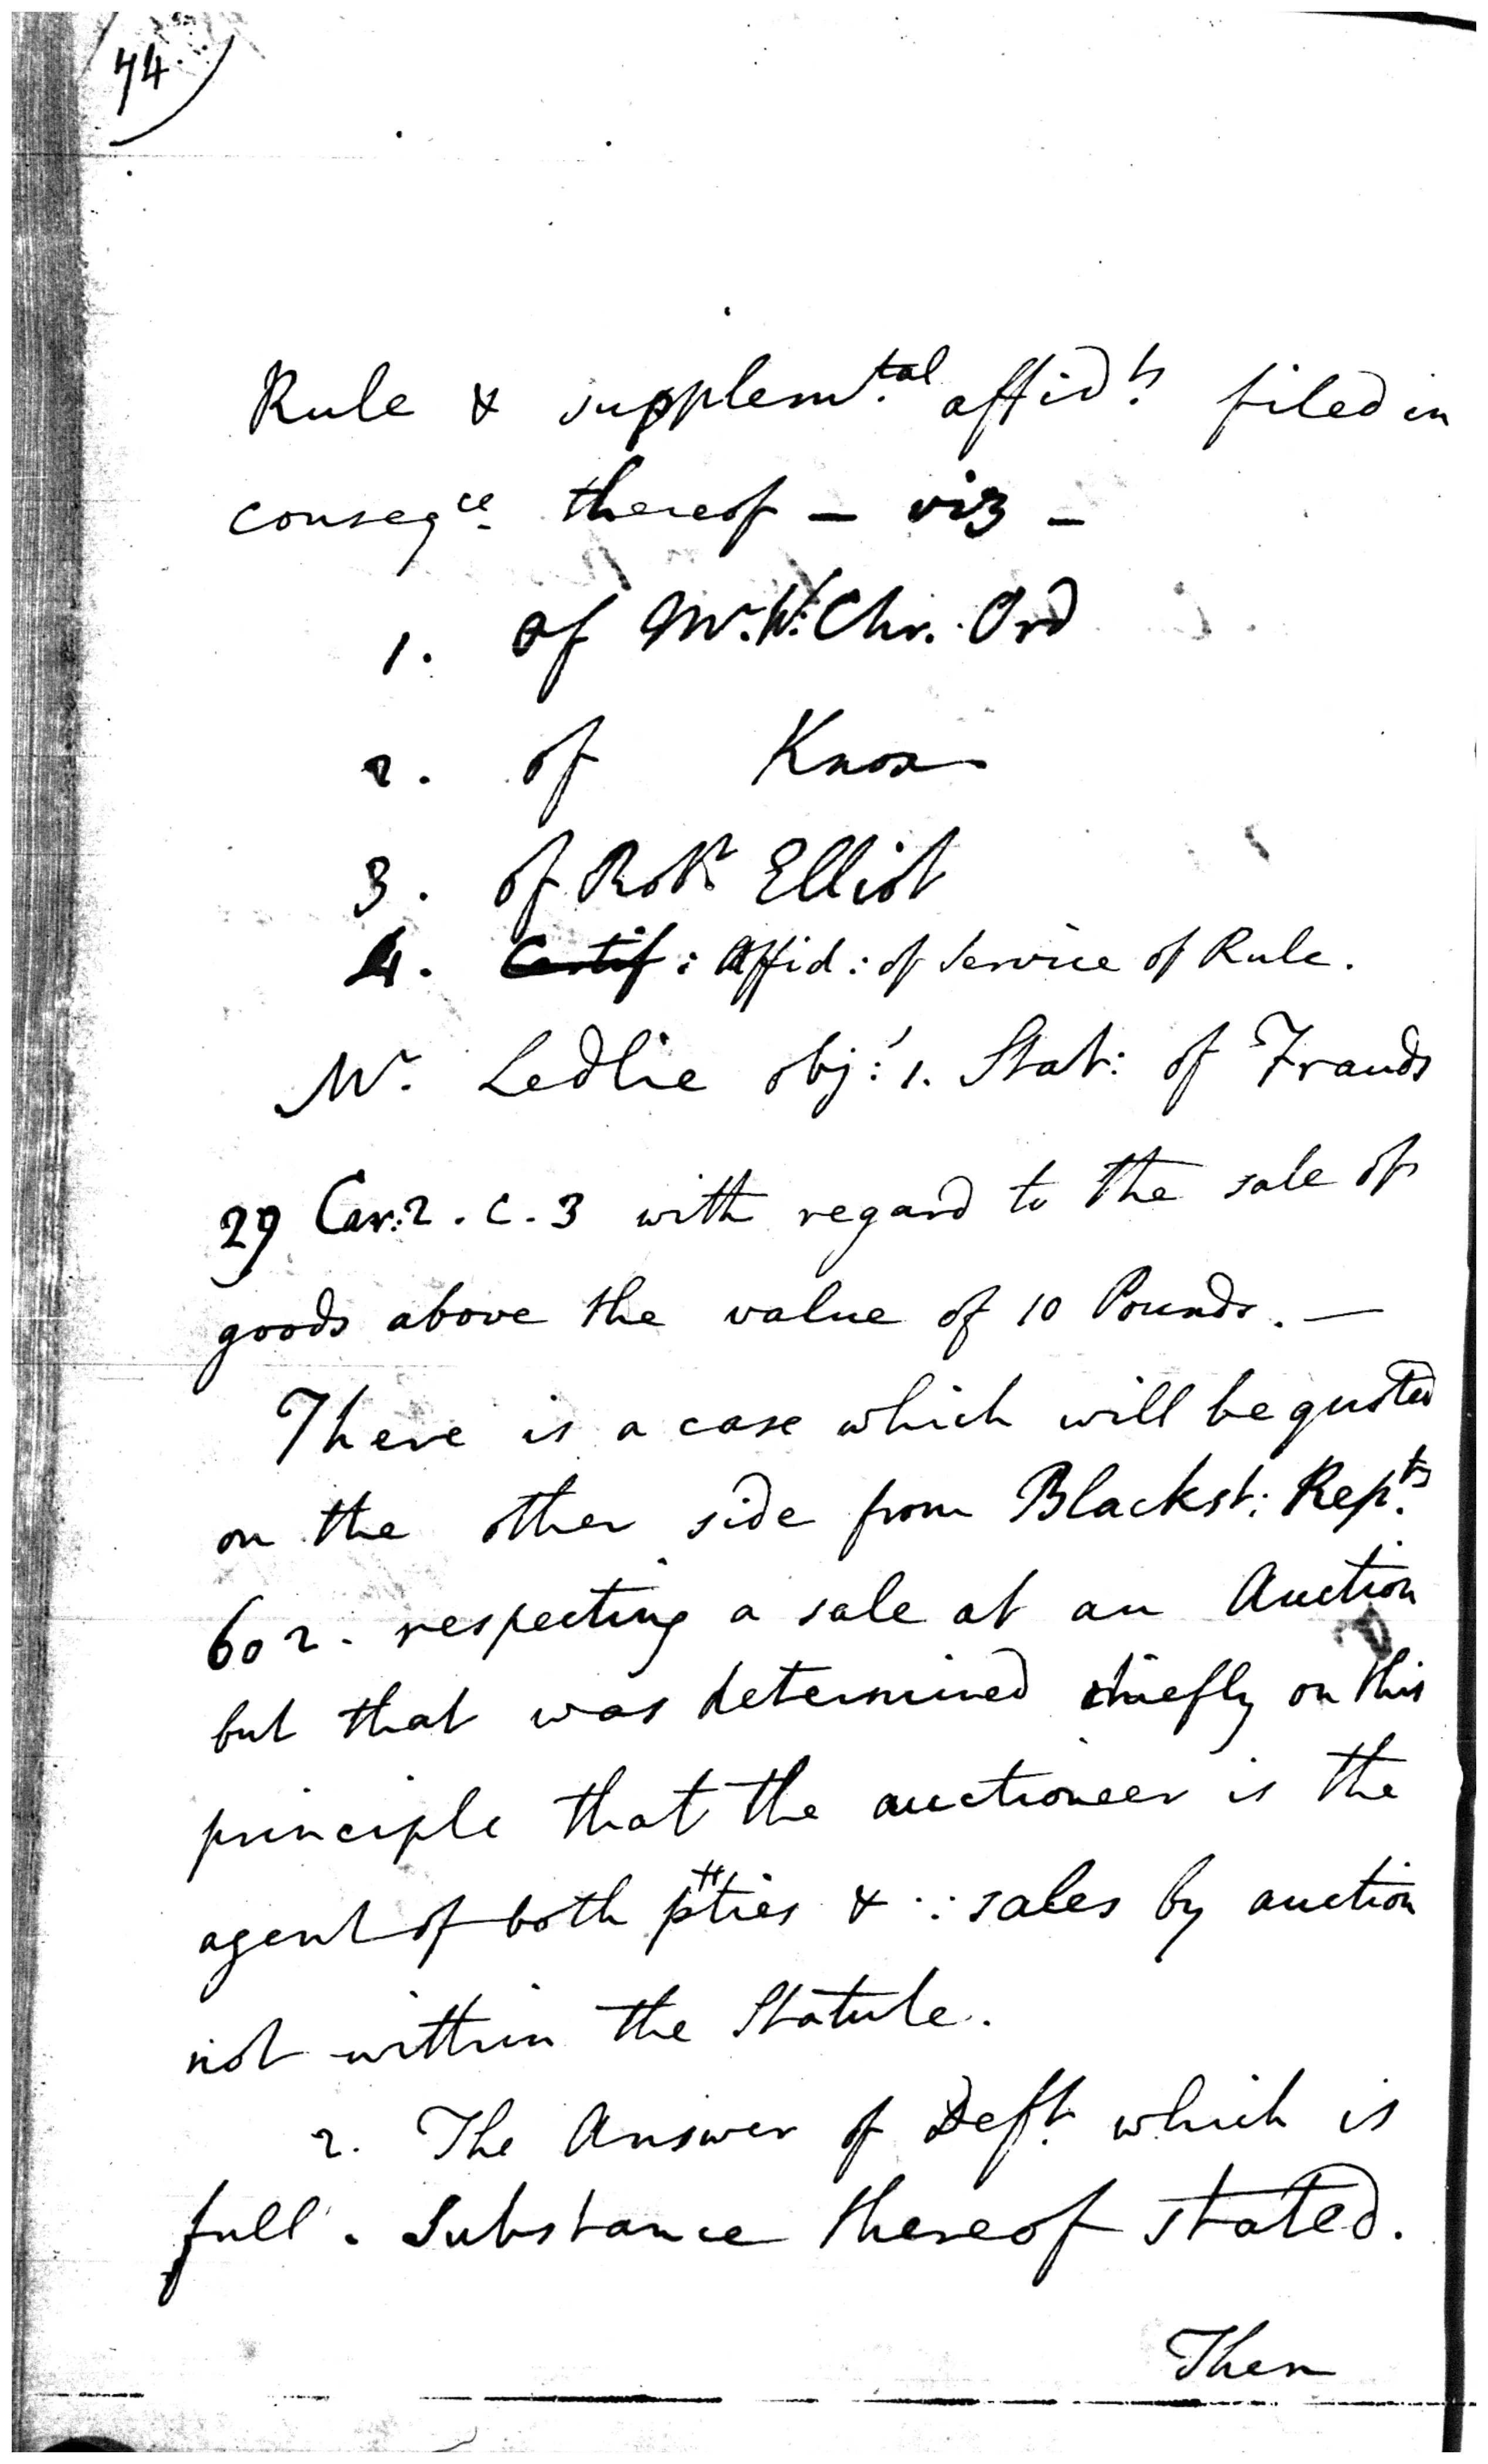 74.
Rule & supplem.tal affid.ts filed in
conseq.ce thereof — viz —
1. of Mr. W. Chr. Ord
2. of Knox
3. of Rob.t Elliot
4. Certif: Affid: of Service of Rule.
Mr. Ledlie obj: 1. Stat: of Frauds
29 Car: 2. c. 3 with regard to the sale of
goods above the value of 10 Pounds. —
There is a case which will be quoted
on the other side from Blackst: Rep.ts
602. respecting a sale at an Auction
but that was determined chiefly on this
principle that the auctioneer is the
agent of both pties & ∴ sales by auction
not within the Statute.
2. The Answer of Deft. which is
full. Substance thereof stated.
Then